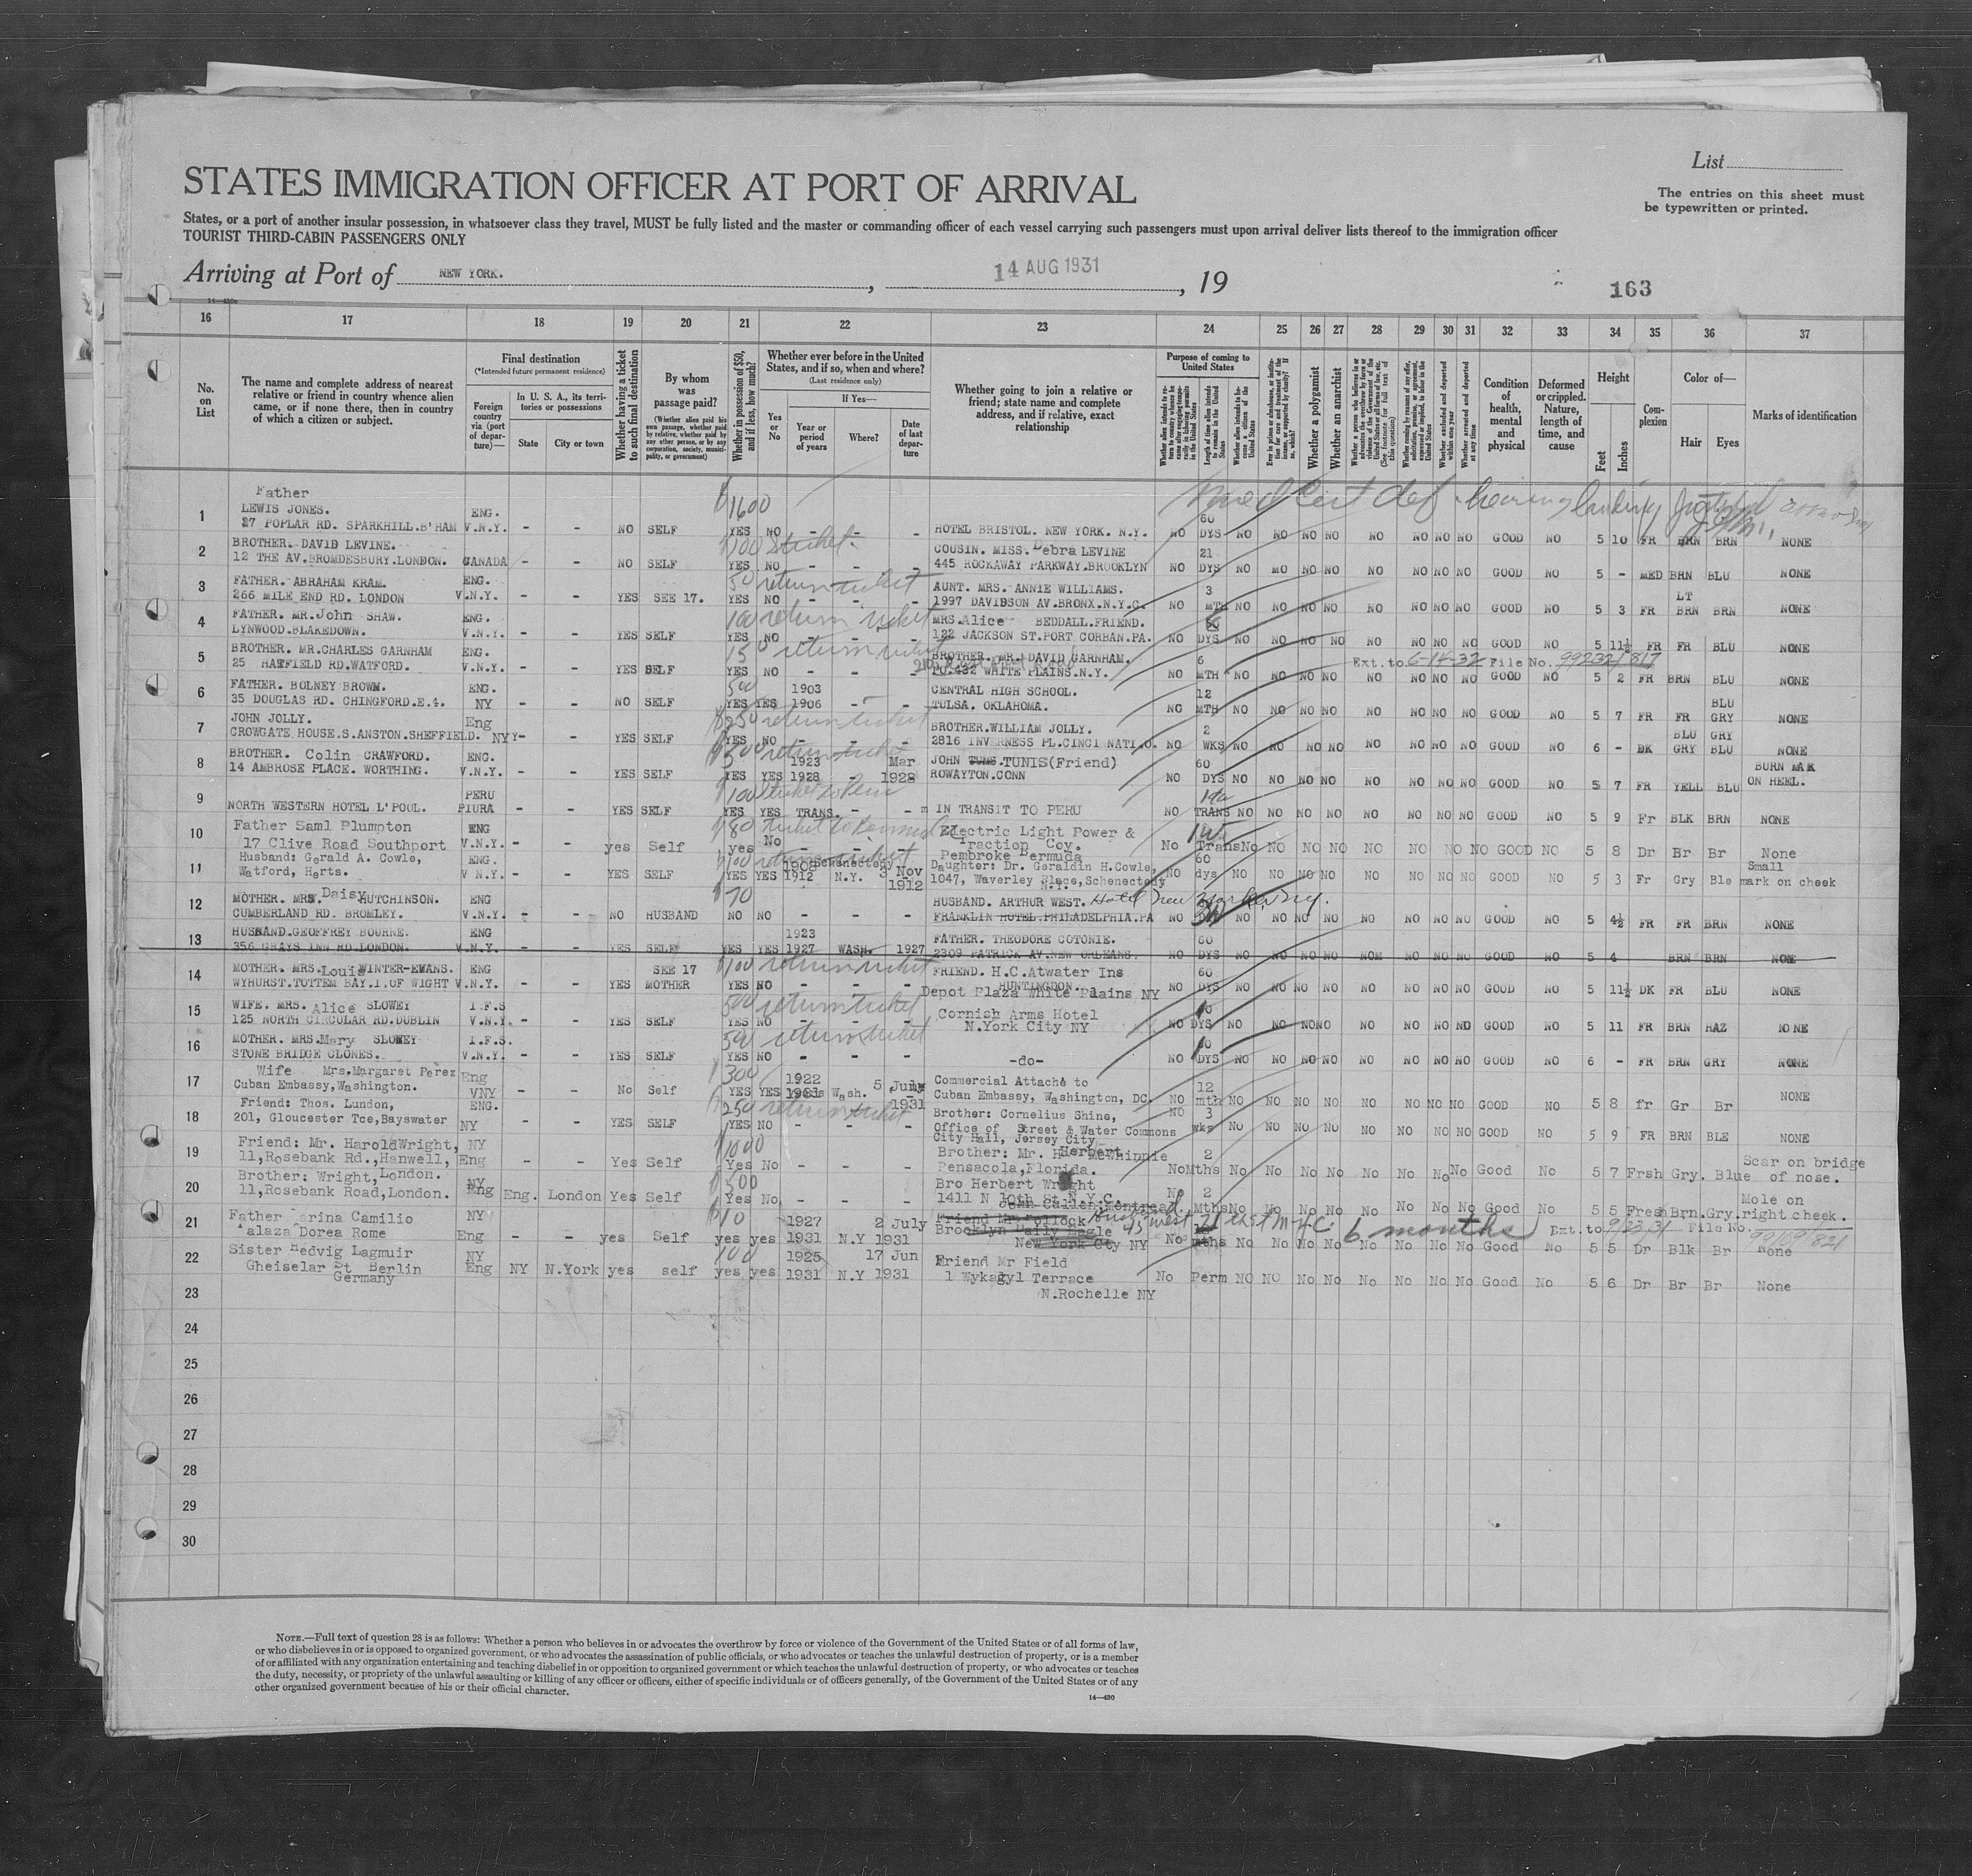 List
STATES IMMIGRATION OFFICER AT PORT OF ARRIVAL
The entries on this sheet must
be typewritten or printed.
States, or a port of another insular possession, in whatsoever class they travel, MUST be fully listed and the master or commanding officer of each vessel carrying such passengers must upon arrival deliver lists thereof to the immigration officer
TOURIST THIRD-CABIN PASSENGERS ONLY
Arriving at Port of NEW YORK. , 14 AUG 1931 , 19
163
16 17 18 19 20 21 22 23 24 25 26 27 28 29 30 31 32 33 34 35 36 37
No. on List
The name and complete address of nearest relative or friend in country whence alien came, or if none there, then in country of which a citizen or subject.
Final destination
(*Intended future permanent residence)
Foreign country via (port of departure)—
In U. S. A., its territories or possessions
State
City or town
Whether having a ticket to such final destination
By whom was passage paid?
(Whether alien paid his own passage, whether paid by relative, whether paid by any other person, or by any corporation, society, municipality, or government)
Whether in possession of $50, and if less, how much?
Whether ever before in the United States, and if so, when and where?
(Last residence only)
If Yes—
Yes or No
Year or period of years
Where?
Date of last departure
Whether going to join a relative or friend; state name and complete address, and if relative, exact relationship
Purpose of coming to United States
Length of time alien intends to remain in the United States
Whether alien intends to become a citizen of the United States
Whether a polygamist
Whether an anarchist
Whether excluded and deported within one year
Whether arrested and deported at any time
Condition of health, mental and physical
Deformed or crippled. Nature, length of time, and cause
Height
Feet
Inches
Complexion
Color of—
Hair
Eyes
Marks of identification
1 Father LEWIS JONES. ENG. $1600
27 POPLAR RD. SPARKHILL.B'HAM V.N.Y. - - NO SELF YES NO - - - HOTEL BRISTOL. NEW YORK. N.Y. NO 60 DYS NO NO NO NO NO NO NO NO GOOD NO 5 10 FR BRN BRN NONE
2 BROTHER. DAVID LEVINE. COUSIN. MISS. Debra LEVINE 21
12 THE AV.BROMDESBURY.LONDON. CANADA - - NO SELF YES NO - - 445 ROCKAWAY PARKWAY.BROOKLYN NO DYS NO NO NO NO NO NO NO NO GOOD NO 5 - MED BRN BLU NONE
3 FATHER. ABRAHAM KRAM. ENG. 50 return ticket AUNT. MRS. ANNIE WILLIAMS. 3 LT
266 MILE END RD. LONDON V.N.Y. - - YES SEE 17. YES NO - - - 1997 DAVIDSON AV.BRONX.N.Y.C. NO MTH NO NO NO NO NO NO NO NO GOOD NO 5 3 FR BRN BRN NONE
4 FATHER. MR.John SHAW. ENG. 100 return ticket MRS.Alice BEDDALL.FRIEND.
LYNWOOD.BLAKEDOWN. V.N.Y. - - YES SELF YES NO - - - 122 JACKSON ST.PORT CORBAN.PA. NO DYS NO NO NO NO NO NO NO NO GOOD NO 5 11½ FR FR BLU NONE
5 BROTHER. MR.CHARLES GARNHAM ENG. return ticket BROTHER. MR. DAVID GARNHAM. 6 Ext. to 6-14-32 File No. 99232/817
25 HATFIELD RD.WATFORD. V.N.Y. - - YES SELF YES NO - - - PO.432 WHITE PLAINS.N.Y. NO MTH NO NO NO NO NO NO NO NO GOOD NO 5 2 FR BRN BLU NONE
6 FATHER. BOLNEY BROWN. ENG. 500 1903 CENTRAL HIGH SCHOOL. 12 BLU
35 DOUGLAS RD. CHINGFORD.E.4. NY - - NO SELF YES YES 1906 - - TULSA. OKLAHOMA. NO MTH NO NO NO NO NO NO NO NO GOOD NO 5 7 FR FR GRY NONE
7 JOHN JOLLY. Eng $250 return ticket BROTHER.WILLIAM JOLLY. 2 BLU GRY
CROWGATE HOUSE.S.ANSTON.SHEFFIELD. NY - - YES SELF YES NO - - - 2816 INVERNESS PL.CINCINNATI.O. NO WKS NO NO NO NO NO NO NO NO GOOD NO 6 - DK GRY BLU NONE
8 BROTHER. Colin CRAWFORD. ENG. $500 return ticket 1923 Mar JOHN TUNIS(Friend) 60 BURN MAK
14 AMBROSE PLACE. WORTHING. V.N.Y. - - YES SELF YES YES 1928 - 1928 ROWAYTON.CONN NO DYS NO NO NO NO NO NO NO NO GOOD NO 5 7 FR YELL BLU ON HEEL.
9 PERU $100 ticket to Peru
NORTH WESTERN HOTEL L'POOL. PIURA - - YES SELF YES YES TRANS. - - IN TRANSIT TO PERU NO TRANS NO NO NO NO NO NO NO NO GOOD NO 5 9 Fr BLK BRN NONE
10 Father Saml Plumpton ENG $80 ticket to Bermuda Electric Light Power &
17 Clive Road Southport V.N.Y. - - yes Self yes No - - - Traction Coy. No Trans No NO NO NO NO NO NO NO GOOD NO 5 8 Dr Br Br None
Pembroke Bermuda
11 Husband: Gerald A. Cowle, ENG. $100 return ticket 1908 Schenectedy 3 Nov Daughter: Dr. Geraldin H.Cowle, 60 Small
Watford, Herts. V N.Y. - - YES SELF YES YES 1912 N.Y. 1912 1047, Waverley Place,Schenectedy N.Y. NO dys NO NO NO NO NO NO NO NO GOOD NO 5 3 Fr Gry Ble mark on cheek
12 MOTHER. MRS. Daisy HUTCHINSON. ENG $70 HUSBAND. ARTHUR WEST. Hotel New Yorker, N.Y.
CUMBERLAND RD. BROMLEY. V.N.Y. - - NO HUSBAND NO NO - - - FRANKLIN HOTEL.PHILADELPHIA.PA NO NO NO NO NO NO NO NO NO GOOD NO 5 4½ FR FR BRN NONE
13 HUSBAND.GEOFFREY BOURNE. ENG 1923 FATHER. THEODORE COTONIE. 60
356 GRAYS INN RD.LONDON. V.N.Y. - - YES SELF YES YES 1927 WASH. 1927 2309 PATRICK AV.NEW ORLEANS. NO DYS NO NO NO NO NO NO NO NO GOOD NO 5 4 BRN BRN NONE
14 MOTHER. MRS.Louis WINTER-EVANS. ENG SEE 17 $100 return ticket FRIEND. H.C.Atwater Ins 60
WYHURST.TOTTEM BAY.I.OF WIGHT V.N.Y. - - YES MOTHER YES NO - - - HUNTINGDON. NO DYS NO NO NO NO NO NO NO NO GOOD NO 5 11½ DK FR BLU NONE
Depot Plaza White Plains NY
15 WIFE. MRS. Alice SLOWEY I.F.S 500 return ticket Cornish Arms Hotel
125 NORTH CIRCULAR RD.DUBLIN V.N.Y. - - YES SELF YES NO - - - N.York City NY NO DYS NO NO NO NO NO NO NO NO GOOD NO 5 11 FR BRN HAZ NONE
16 MOTHER. MRS.Mary SLOWEY I.F.S. 50 return ticket
STONE BRIDGE CLONES. V.N.Y. - - YES SELF YES NO - - - -do- NO DYS NO NO NO NO NO NO NO NO GOOD NO 6 - FR BRN GRY NONE
17 Wife Mrs.Margaret Perez Eng $300 1922 5 July Commercial Attache to 12
Cuban Embassy,Washington. VNY - - No Self YES YES 1931 Wash. 1931 Cuban Embassy, Washington, DC. NO mth NO NO NO NO NO NO NO NO GOOD NO 5 8 fr Gr Br NONE
18 Friend: Thos. Lundon, ENG. $250 return ticket Brother: Cornelius Shine, NO 3
201, Gloucester Tce,Bayswater NY - - YES SELF YES NO - - - Office of Street & Water Commons wks No NO NO NO NO NO NO NO GOOD NO 5 9 FR BRN BLE NONE
City Hall, Jersey City
19 Friend: Mr. HaroldWright, NY $1000 Brother: Mr. H. Herbert McWhinnie 2 Scar on bridge
11,Rosebank Rd.,Hanwell, Eng - - Yes Self Yes No - - - Pensacola,Florida. No Mths No No No No No No No No Good No 5 7 Frsh Gry. Blue of nose.
London.
20 Brother: Wright, NY $500 Bro Herbert Wright No 2 Mole on
11,Rosebank Road,London. Eng Eng. London Yes Self Yes No - - 1411 N 10th St N.Y.C. Mths No No No No No No No No Good No 5 5 Fresh Brn.Gry.right cheek.
21 Father Carina Camilio NY $10 1927 2 July Friend Mr Pollock 45 West 21 est N.Y.C. 6 months Ext. to 9/23/31 File No. 99109/821
Palaza Dorea Rome Eng - - yes Self yes yes 1931 N.Y 1931 Brooklyn Daily Eagle No mths No No No No No No No No Good No 5 5 Dr Blk Br None
New York Cty NY
22 Sister Hedvig Lagmuir NY 100 1925 17 Jun Friend Mr Field
Gheiselar St Berlin Eng NY N.York yes self yes yes 1931 N.Y 1931 1 Wykagyl Terrace No Perm NO NO No No No No No No Good No 5 6 Dr Br Br None
Germany N.Rochelle NY
23
24
25
26
27
28
29
30
NOTE.—Full text of question 28 is as follows: Whether a person who believes in or advocates the overthrow by force or violence of the Government of the United States or of all forms of law,
or who disbelieves in or is opposed to organized government, or who advocates the assassination of public officials, or who advocates or teaches the unlawful destruction of property, or is a member
of or affiliated with any organization entertaining and teaching disbelief in or opposition to organized government or which teaches the unlawful destruction of property, or who advocates or teaches
the duty, necessity, or propriety of the unlawful assaulting or killing of any officer or officers, either of specific individuals or of officers generally, of the Government of the United States or of any
other organized government because of his or their official character.
14—430